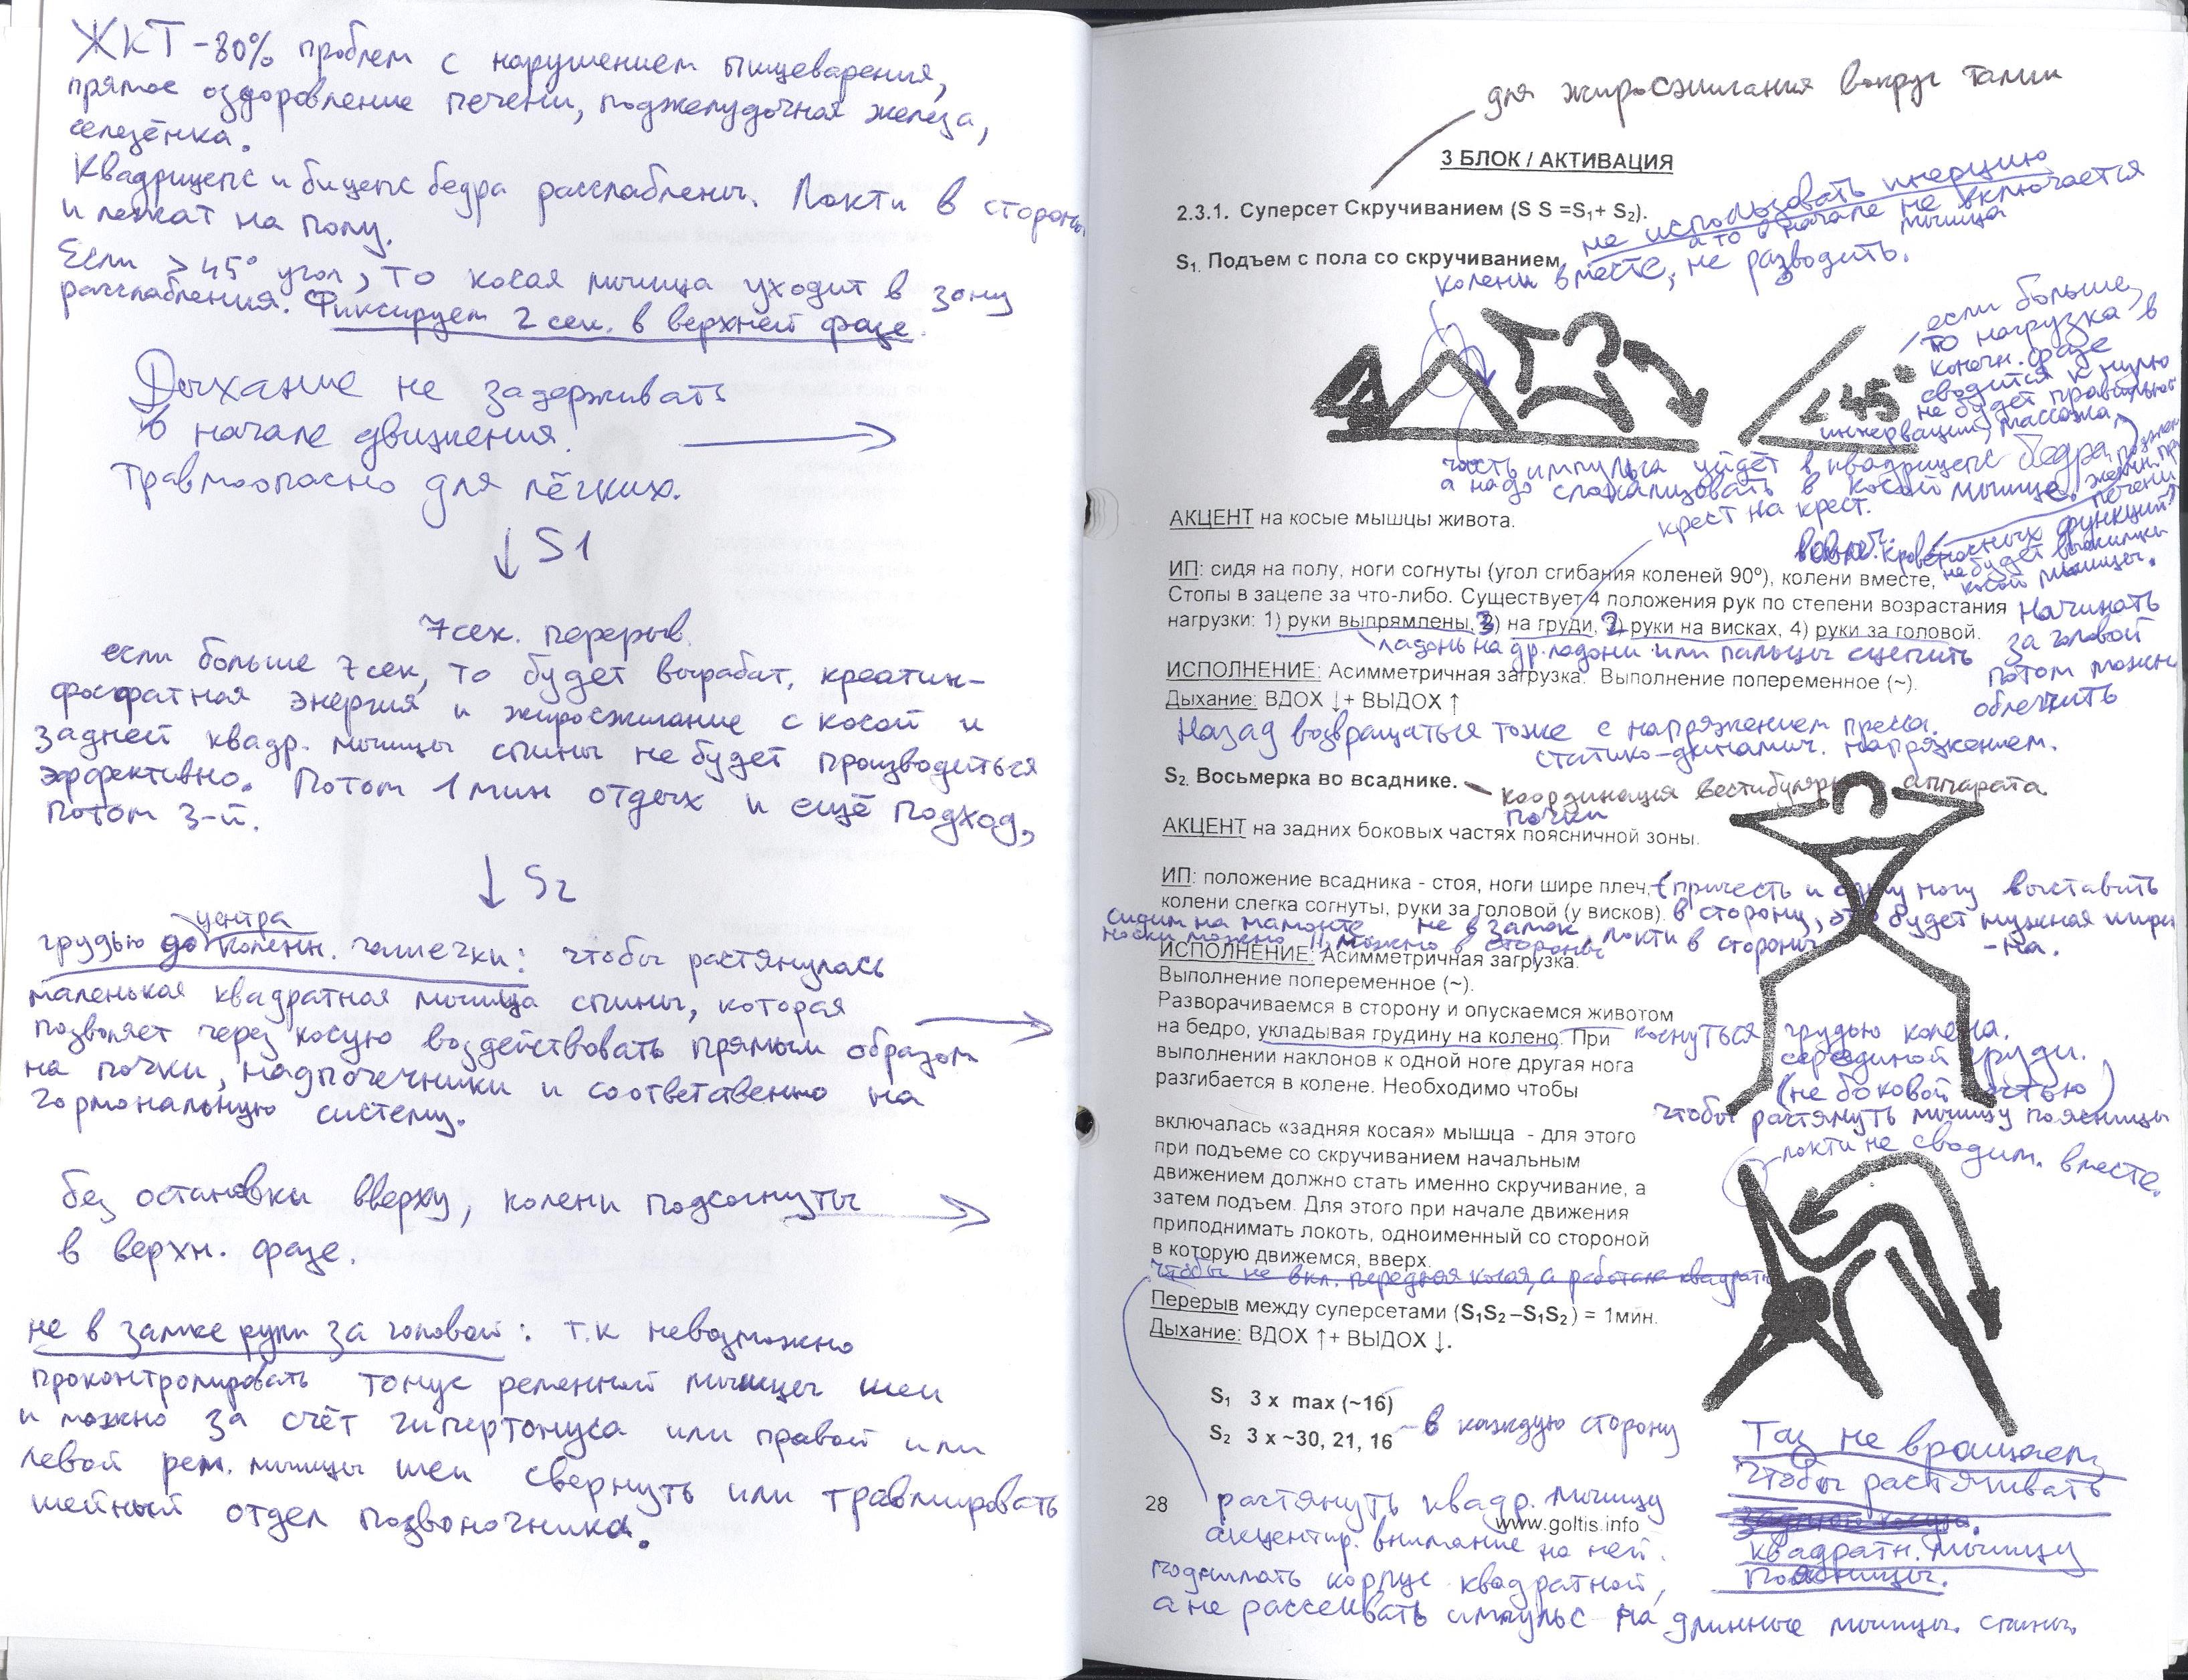 ЖКТ - 80% проблем с нарушением пищеварения,
прямое оздоровление печени, поджелудочная железа,
селезёнка.
Квадрицепс и бицепс бедра расслаблены. Локти в стороны
и лежат на полу.
Если > 45° угол, то косая мышца уходит в зону
расслабления. Фиксируем 2 сек. в верхней фазе.
Дыхание не задерживать
в начале движения.
Травмоопасно для лёгких.
↓ S1
7 сек. перерыв.
если больше 7 сек, то будет выработ. креатин-
фосфатная энергия и жиросжигание с косой и
задней квадр. мышцы спины не будет производиться
эффективно. Потом 1 мин отдых и ещё подход,
потом 3-й.
↓ S2
центра
грудью до коленн. чашечки: чтобы растянулась
маленькая квадратная мышца спины, которая
позволяет через косую воздействовать прямым образом
на почки, надпочечники и соответственно на
гормональную систему.
без остановки вверху, колени подсогнуты
в верхн. фазе.
не в замке руки за головой: т.к невозможно
проконтролировать тонус ременной мышцы шеи
и можно за счёт гипертонуса или правой или
левой рем. мышцы шеи свернуть или травмировать
шейный отдел позвоночника.
для жиросжигания вокруг талии
3 БЛОК / АКТИВАЦИЯ
2.3.1. Суперсет Скручиванием (S S =S1+ S2).
не использовать инерцию
а то в начале не включается
мышца
S1. Подъем с пола со скручиванием.
колени вместе, не разводить.
<45°
если больше,
то нагрузка в
конечн. фазе
сводится к нулю
не будет правильной
иннервации, массажа
часть импульса уйдёт в квадрицепс бедра,
а надо локализовать в косой мышце.
печени
крест на крест.
АКЦЕНТ на косые мышцы живота.
функций
не будет
косой мышцы.
ИП: сидя на полу, ноги согнуты (угол сгибания коленей 90º), колени вместе,
Стопы в зацепе за что-либо. Существует 4 положения рук по степени возрастания
нагрузки: 1) руки выпрямлены, 3) на груди, 2) руки на висках, 4) руки за головой.
ладонь на др. ладони или пальцы сцепить
начинать
за головой
потом можно
облегчить
ИСПОЛНЕНИЕ: Асимметричная загрузка. Выполнение попеременное (~).
Дыхание: ВДОХ ↓+ ВЫДОХ ↑
Назад возвращаться тоже с напряжением пресса.
статико-динамич. напряжением.
S2. Восьмерка во всаднике.
координация вестибулярн аппарата
почки
АКЦЕНТ на задних боковых частях поясничной зоны.
ИП: положение всадника - стоя, ноги шире плеч, (присесть и одну ногу выставить
колени слегка согнуты, руки за головой (у висков). в сторону, это будет нужная шири
-на.
не в замок, локти в стороны
носки можно ||, можно в стороны
ИСПОЛНЕНИЕ: Асимметричная загрузка.
Выполнение попеременное (~).
Разворачиваемся в сторону и опускаемся животом
на бедро, укладывая грудину на колено. При
выполнении наклонов к одной ноге другая нога
разгибается в колене. Необходимо чтобы
коснуться грудью колена.
серединой груди.
(не боковой частью)
чтобы растянуть мышцу поясницы
локти не сводим. вместе.
включалась «задняя косая» мышца - для этого
при подъеме со скручиванием начальным
движением должно стать именно скручивание, а
затем подъем. Для этого при начале движения
приподнимать локоть, одноименный со стороной
в которую движемся, вверх.
чтобы не вкл. передняя косая, а работала квадратн
Перерыв между суперсетами (S1S2–S1S2) = 1мин.
Дыхание: ВДОХ ↑+ ВЫДОХ ↓.
S1 3 x max (~16)
S2 3 x ~30, 21, 16
- в каждую сторону
Таз не вращаем,
чтобы растягивать
квадратн. мышцу
поясницы.
28
www.goltis.info
растянуть квадр. мышцу
акцентир. внимание на ней.
поднимать корпус квадратной,
а не рассеивать импульс на длинные мышцы спины